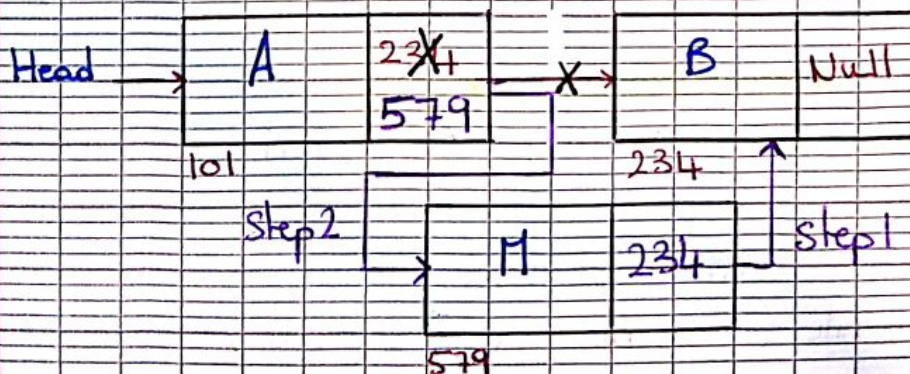 Head
A
234
579
X
B
Null
101
234
Step2
M
234
Step1
579